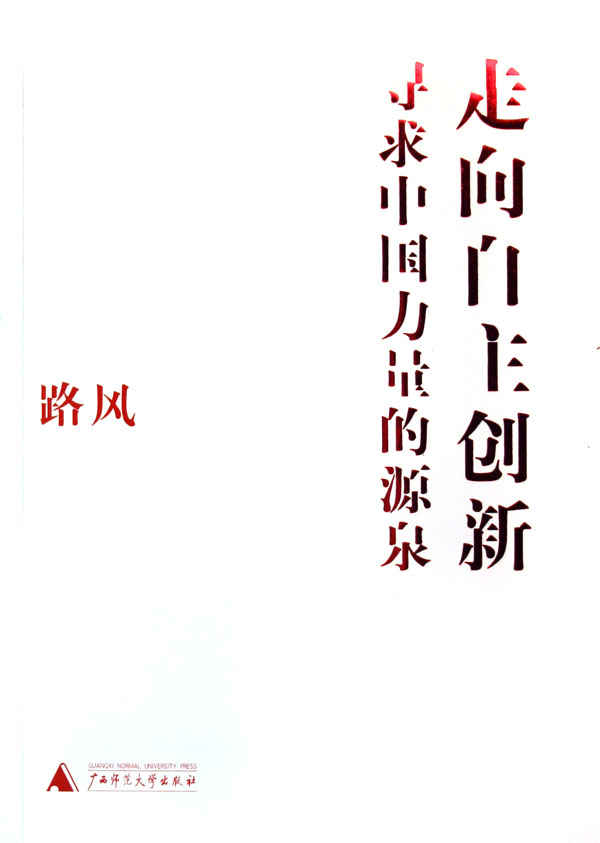 走向自主创新
寻求中国力量的源泉
路风
GUANGXI NORMAL UNIVERSITY PRESS
广西师范大学出版社